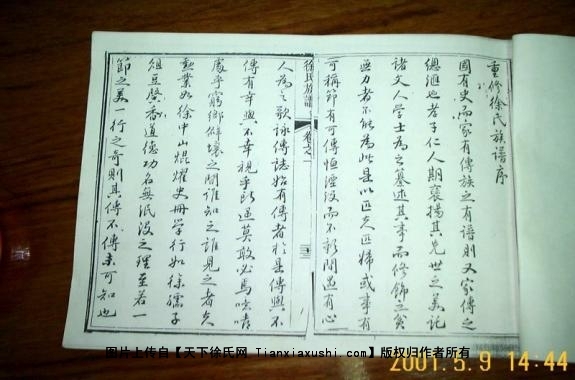 重修徐氏族譜序
國有史而家有傳族之有譜則又家傳之
總滙也孝子仁人期襄揚其先世之美記
諸文人學士為之纂述其事而修飾之
無力者不能為此是以匹夫匹婦或事有
可稱節有可傳恒湮沒而不彰間遇有心
徐氏族譜 卷之一
人為之歌詠傳誌始有傳者於是傳與不
傳有幸與不幸視乎所遇莫敢必焉嗟嗟
處乎窮鄉僻壤之間誰知之誰見之者矣
勲業如徐中山焜耀史冊學行如徐孺子
俎豆馨香道德功名無泯沒之理至若一
節之美一行之奇則其傳不傳未可知也
图片上传自【天下徐氏网 Tianxiaxushi.com】版权归作者所有
2001.5.9 14:44